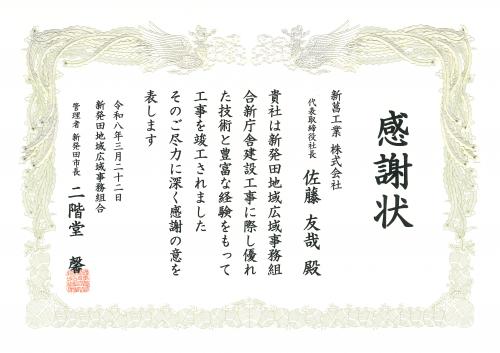 感謝状
新菖工業 株式会社
代表取締役社長 佐藤 友哉 殿
貴社は新発田地域広域事務組
合新庁舎建設工事に際し優れ
た技術と豊富な経験をもって
工事を竣工されました
そのご尽力に深く感謝の意を
表します
令和八年三月二十二日
新発田地域広域事務組合
管理者 新発田市長 二階堂 馨